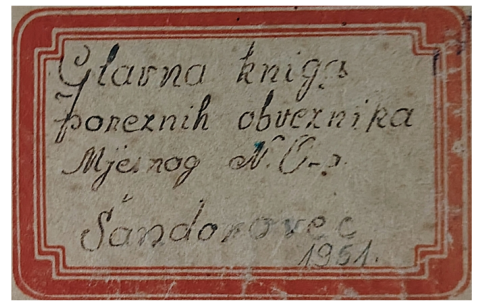 Glavna kniga
poreznih obveznika
Mjesnog N.O-a.
Šandorovec
1951.